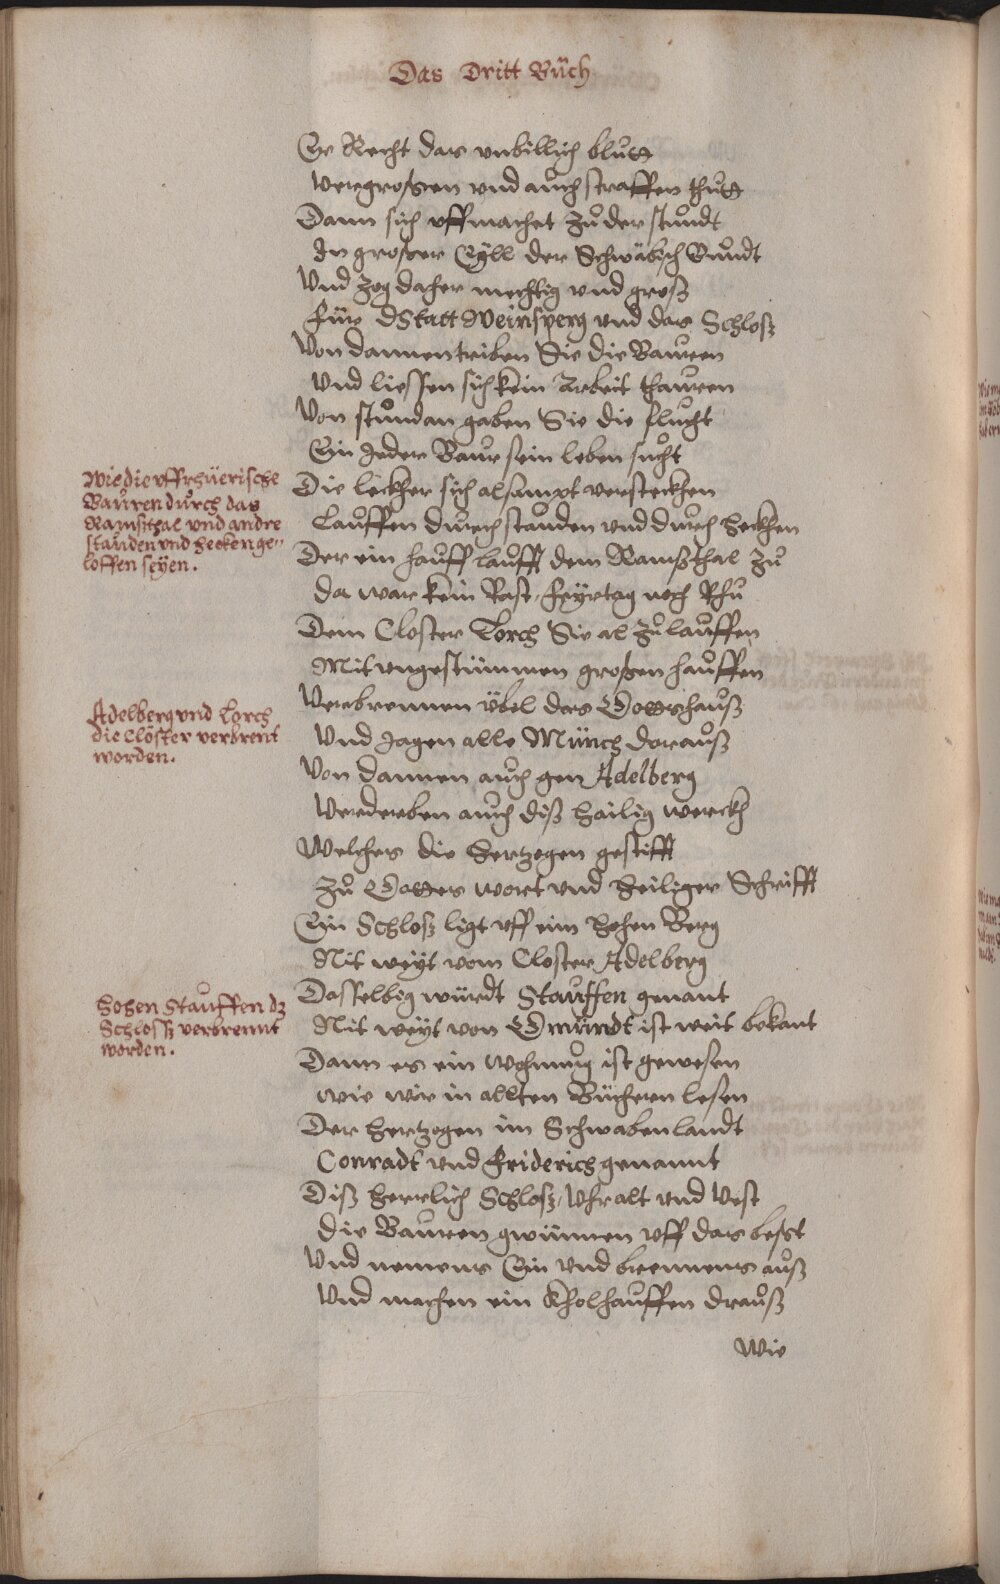 Das Dritt Buch
Er Recht das unbillich bluͦtt
Vergroßen und auch straffen thuͦtt
Dann sich uffmachet zuͦ der stundt
In großer Eyll der Schwäbisch Bundt
Und zog daher mechtig und groß
Für dStatt Weinsperg und das Schloß
Von dannen triben Sie die Bauren
Und liessen sich kein Arbeit thauren
Von stundan gaben Sie die flucht
Ein Jeder Baur sein leben sucht
Wie die uffrhüerische
Bauren durch das
Ramsthal und andre
stauden und hecken ge„
loffen seyen.
Die leckher sich alsampt versteckhen
Lauffen durch stauden und durch heckhen
Der ein hauff laufft dem Ramßthal zuͦ
da war kein Rast, Feyrtag noch Rhuͦ
Dem Closter Lorch Sie al zuͦ lauffen
Mit ungestümmen großen hauffen
Adelberg und Lorch
die Clöster verbrent
worden.
Verbrennen übel das Gottshauß
Und Jagen alle Münch darauß
Von dannen auch gen Adelberg
Verderben auch diß hailig werckh
Welches die hertzogen gestifft
Zuͦ Gottes wort und heiliger Schrifft
Ein Schloß ligt uff eim hohen Berg
Nit weyt vom Closter Adelberg
Hohen Stauffen dz
Schloß verbrennt
worden.
Dasselbig würdt Stauffen genant
Nit weyt von Gmündt ist weit bekant
Dann es ein wohnung ist gewesen
wie wir in allten Büchern lesen
Der hertzogen im Schwabenlandt
Conradt und Friderich genannt
Diß herrlich Schloß, Uhralt und Vest
die Bauren gwünnen uff das best
Und nemens Ein und brennens auß
Und machen ein Kholhauffen drauß
Wie